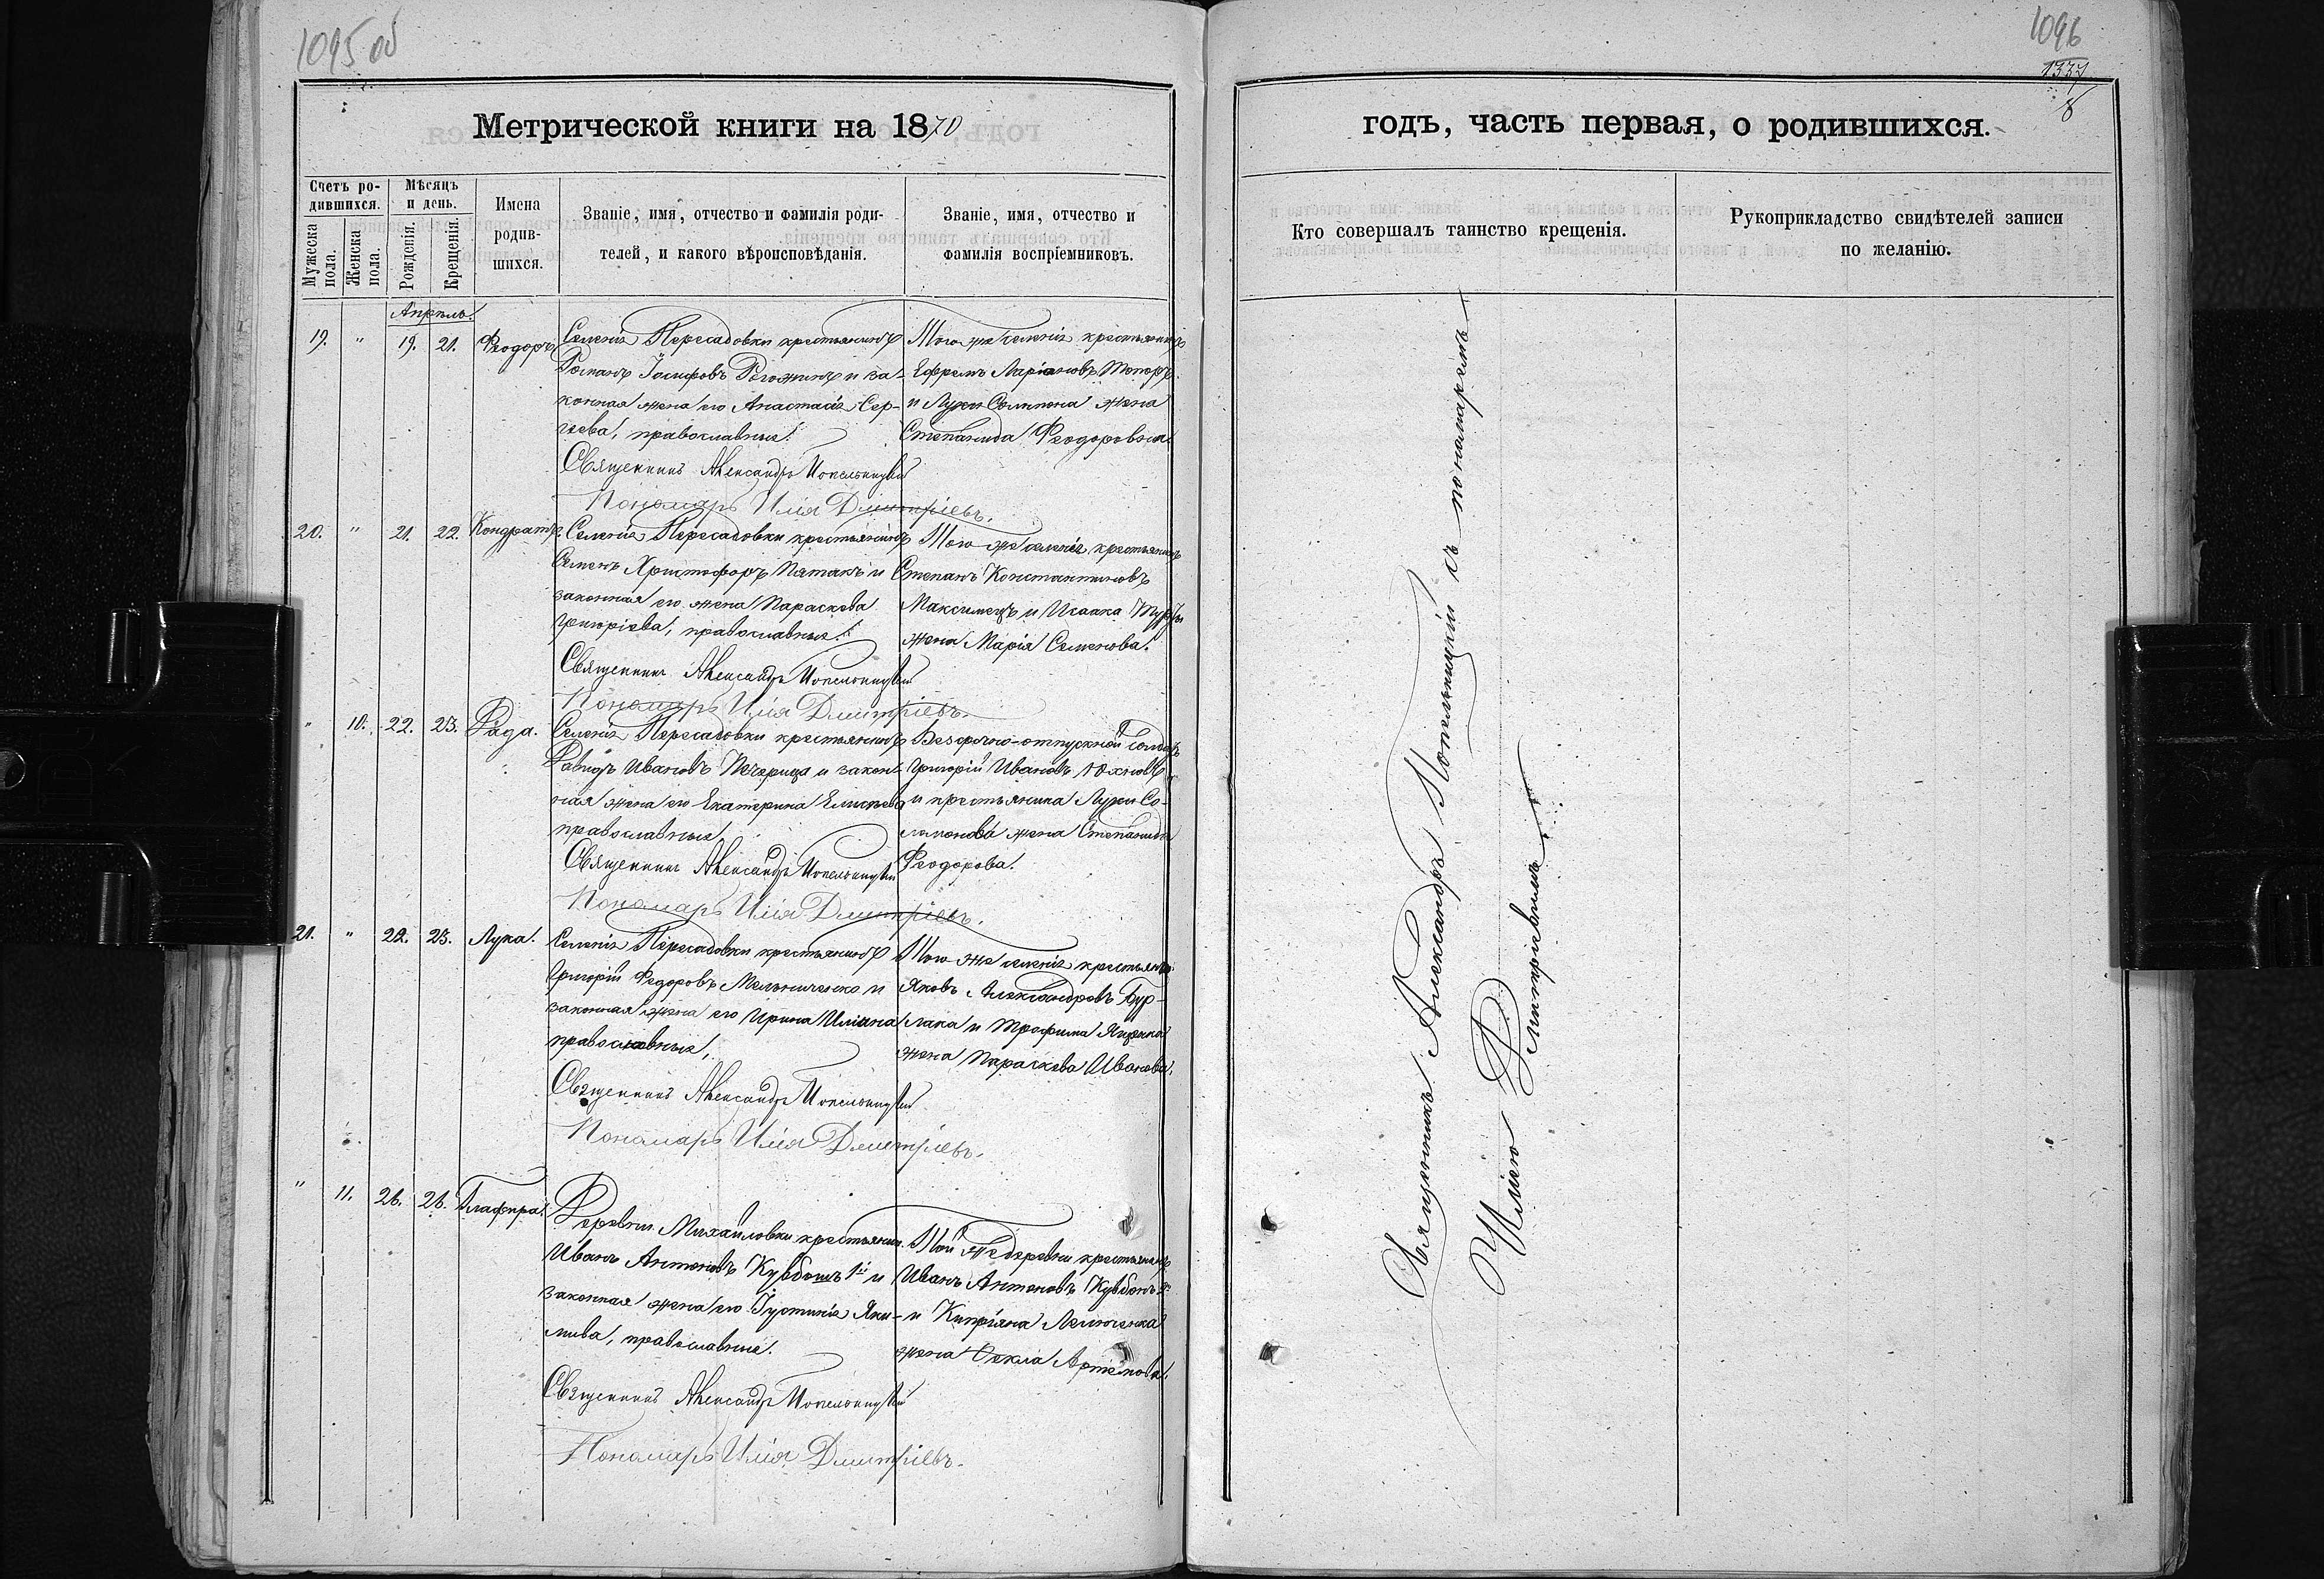 1095 об
Метрической книги на 1870
Счетъ ро-
дившихся.
Мужеска
пола.
Женска
пола.
Мѣсяцъ
и день.
Рожденія.
Крещенія.
Имена
родив-
шихся.
Званіе, имя, отчество и фамилія роди-
телей, и какого вѣроисповѣданія.
Званіе, имя, отчество и
фамилія воспріемниковъ.
Апрѣль.
19. " 19. 21. Ѳеодоръ
Селенія Пересадовки крестьянинъ
Романъ Іосифовъ Рогожинъ и за-
конная жена его Анастасія Сер-
гѣева, православные.
Того же селенія крестьянинъ
Ефремъ Ларіоновъ Топоръ
и Луки Соломона жена
Степанида Ѳеодоровна.
Священникъ Александръ
Пономарь Илія Дмитріевъ.
20. " 21. 22. Кондратъ.
Селенія Пересадовки крестьянинъ
Семенъ Христофоръ Пятакъ и
законная его жена Параскева
Григоріева, православные.
Того же селенія крестьянинъ
Степанъ Константиновъ
Максимецъ и Исаака
жена Марія Семенова.
Священникъ Александръ
Пономарь Илія Дмитріевъ.
" 10. 22. 23. Рада.
Селенія Пересадовки крестьянинъ
Давидъ Ивановъ Печерица и закон-
ная жена его Екатерина
православные.
Безсрочно-отпускной солдатъ
Григорій Ивановъ Юхновъ
и крестьянина Луки Со-
ломонова жена Степанида
Ѳеодорова.
Священникъ Александръ
Пономарь Илія Дмитріевъ.
21. " 22. 23. Лука.
Селенія Пересадовки крестьянинъ
Григорій Федоровъ Мельниченко и
законная жена его Ирина Иліина
православные,
Того же селенія крестьянинъ
Яковъ Александровъ Бур-
лака и Трофима
жена Параскева Иванова.
Священникъ Александръ
Пономарь Илія Дмитріевъ.
" 11. 26. 26. Глафира.
Деревни Михайловки крестьянин.
Иванъ Антоновъ 1й и
законная жена его Іустинія Яки-
мива, православные.
Той же деревни крестьянинъ
Иванъ Антоновъ
и Кипріяна
жена Ѳекла Артемова.
Священникъ Александръ
Пономарь Илія Дмитріевъ.
1096
1337
8
годъ, часть первая, о родившихся.
Кто совершалъ таинство крещенія.
Рукоприкладство свидѣтелей записи
по желанію.
Священникъ Александръ съ пономаремъ
Иліею Дмитріевымъ.